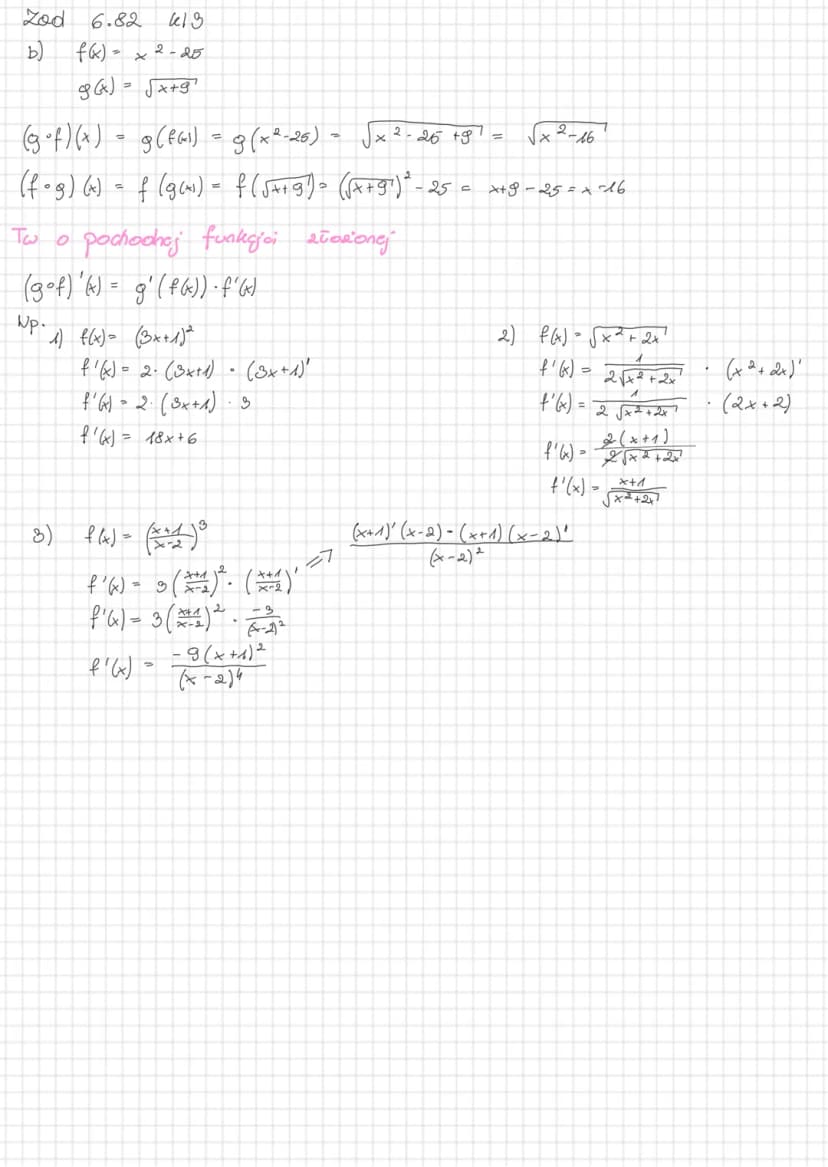 Zad 6.82 k13
b) f(x) = x² - 25
g(x) = √(x+9)
(g∘f)(x) = g(f(x)) = g(x²-25) = √(x² - 25 + 9) = √(x² - 16)
(f∘g)(x) = f(g(x)) = f(√(x+9)) = (√(x+9))² - 25 = x+9 - 25 = x - 16
Tw o pochodnej funkcji złożonej
(g∘f)'(x) = g'(f(x)) · f'(x)
Np. 1) f(x) = (3x+1)²
f'(x) = 2 · (3x+1) · (3x+1)'
f'(x) = 2 · (3x+1) · 3
f'(x) = 18x+6
2) f(x) = √(x² + 2x)
f'(x) = 1/(2√(x² + 2x)) · (x² + 2x)'
f'(x) = 1/(2√(x² + 2x)) · (2x + 2)
f'(x) = 2(x+1)/(2√(x² + 2x))
f'(x) = (x+1)/√(x²+2x)
3) f(x) = ((x+1)/(x-2))³
f'(x) = 3((x+1)/(x-2))² · ((x+1)/(x-2))' ⇒ ((x+1)'(x-2) - (x+1)(x-2)')/(x-2)²
f'(x) = 3((x+1)/(x-2))² · -3/(x-2)²
f'(x) = -9(x+1)²/(x-2)⁴